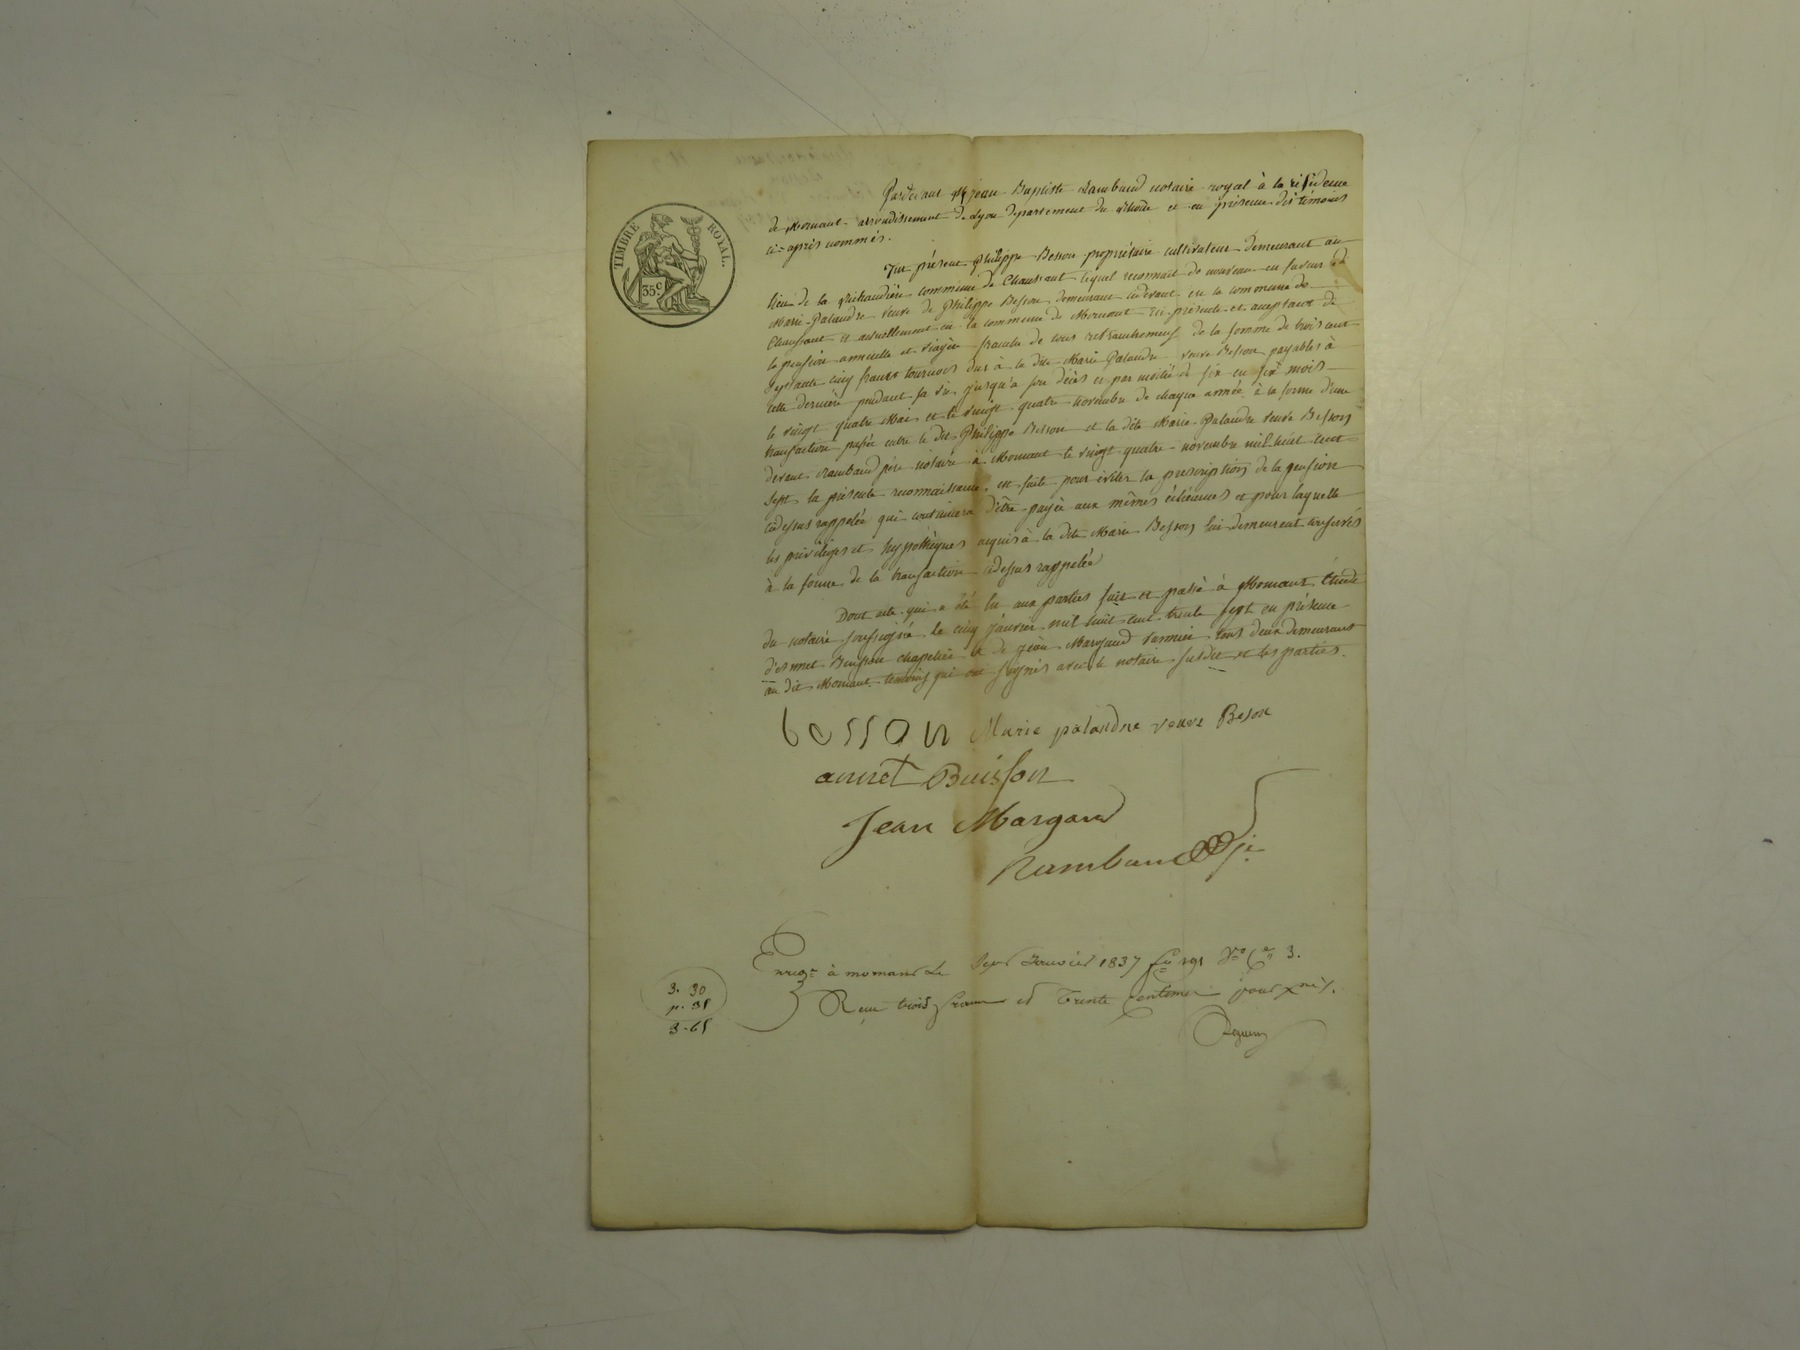 TIMBRE ROYAL.
35c
Pardevant Me jean Baptiste Rambaud notaire royal à la résidence
de Mornant arrondissement de Lyon département du Rhône et en présence des témoins
ci-après nommés.
fut présent Philippe Besson propriétaire cultivateur demeurant au
lieu de la Richaudière commune de Chaussant lequel reconnait de nouveau en faveur de
Marie Palandre veuve de Philippe Besson demeurant cidevant en la commune de
Chaussant et actuellement en la commune de Mornant ici présente et acceptant de
la pension annuelle et viagère franche de tous retranchemens de la somme de trois cent
septante cinq francs tournois dus à la dite Marie Palandre veuve Besson payables à
cette dernière pendant sa vie jusqu'a son décès et par moitié de six en six mois
le vingt quatre Mai et le vingt quatre novembre de chaque année à la forme d'une
transaction passée entre le dit Philippe Besson et la dite Marie Palandre veuve Besson
devant Rambaud père notaire à Mornant le vingt quatre novembre mil huit cent
sept la présente reconnaissance est faite pour éviter la prescription de la pension
cidessus rappelée qui continuera d'être payée aux mêmes échéances et pour laquelle
les privilèges et hypothèques acquis à la dite Marie Besson lui demeurent réservés
à la forme de la transaction cidessus rappelée
Dont acte qui a été lu aux parties fait et passé à Mornant étude
du notaire soussigné le cinq janvier mil huit cent trente sept en présence
d'ennet Buisson chapelier et de jean Margaud vannier tous deux demeurant
au dit Mornant temoins qui ont signés avec le notaire susdit et les parties.
besson Marie palandre veuve Beson
annet Buisson
Jean Margaud
Rambaud je
Enregé à mornant le sept Janvier 1837 fo 191 Vo Ce 3.
Reçu trois francs et trente centimes pour xmes.
3. 30
p. 35
3. 65